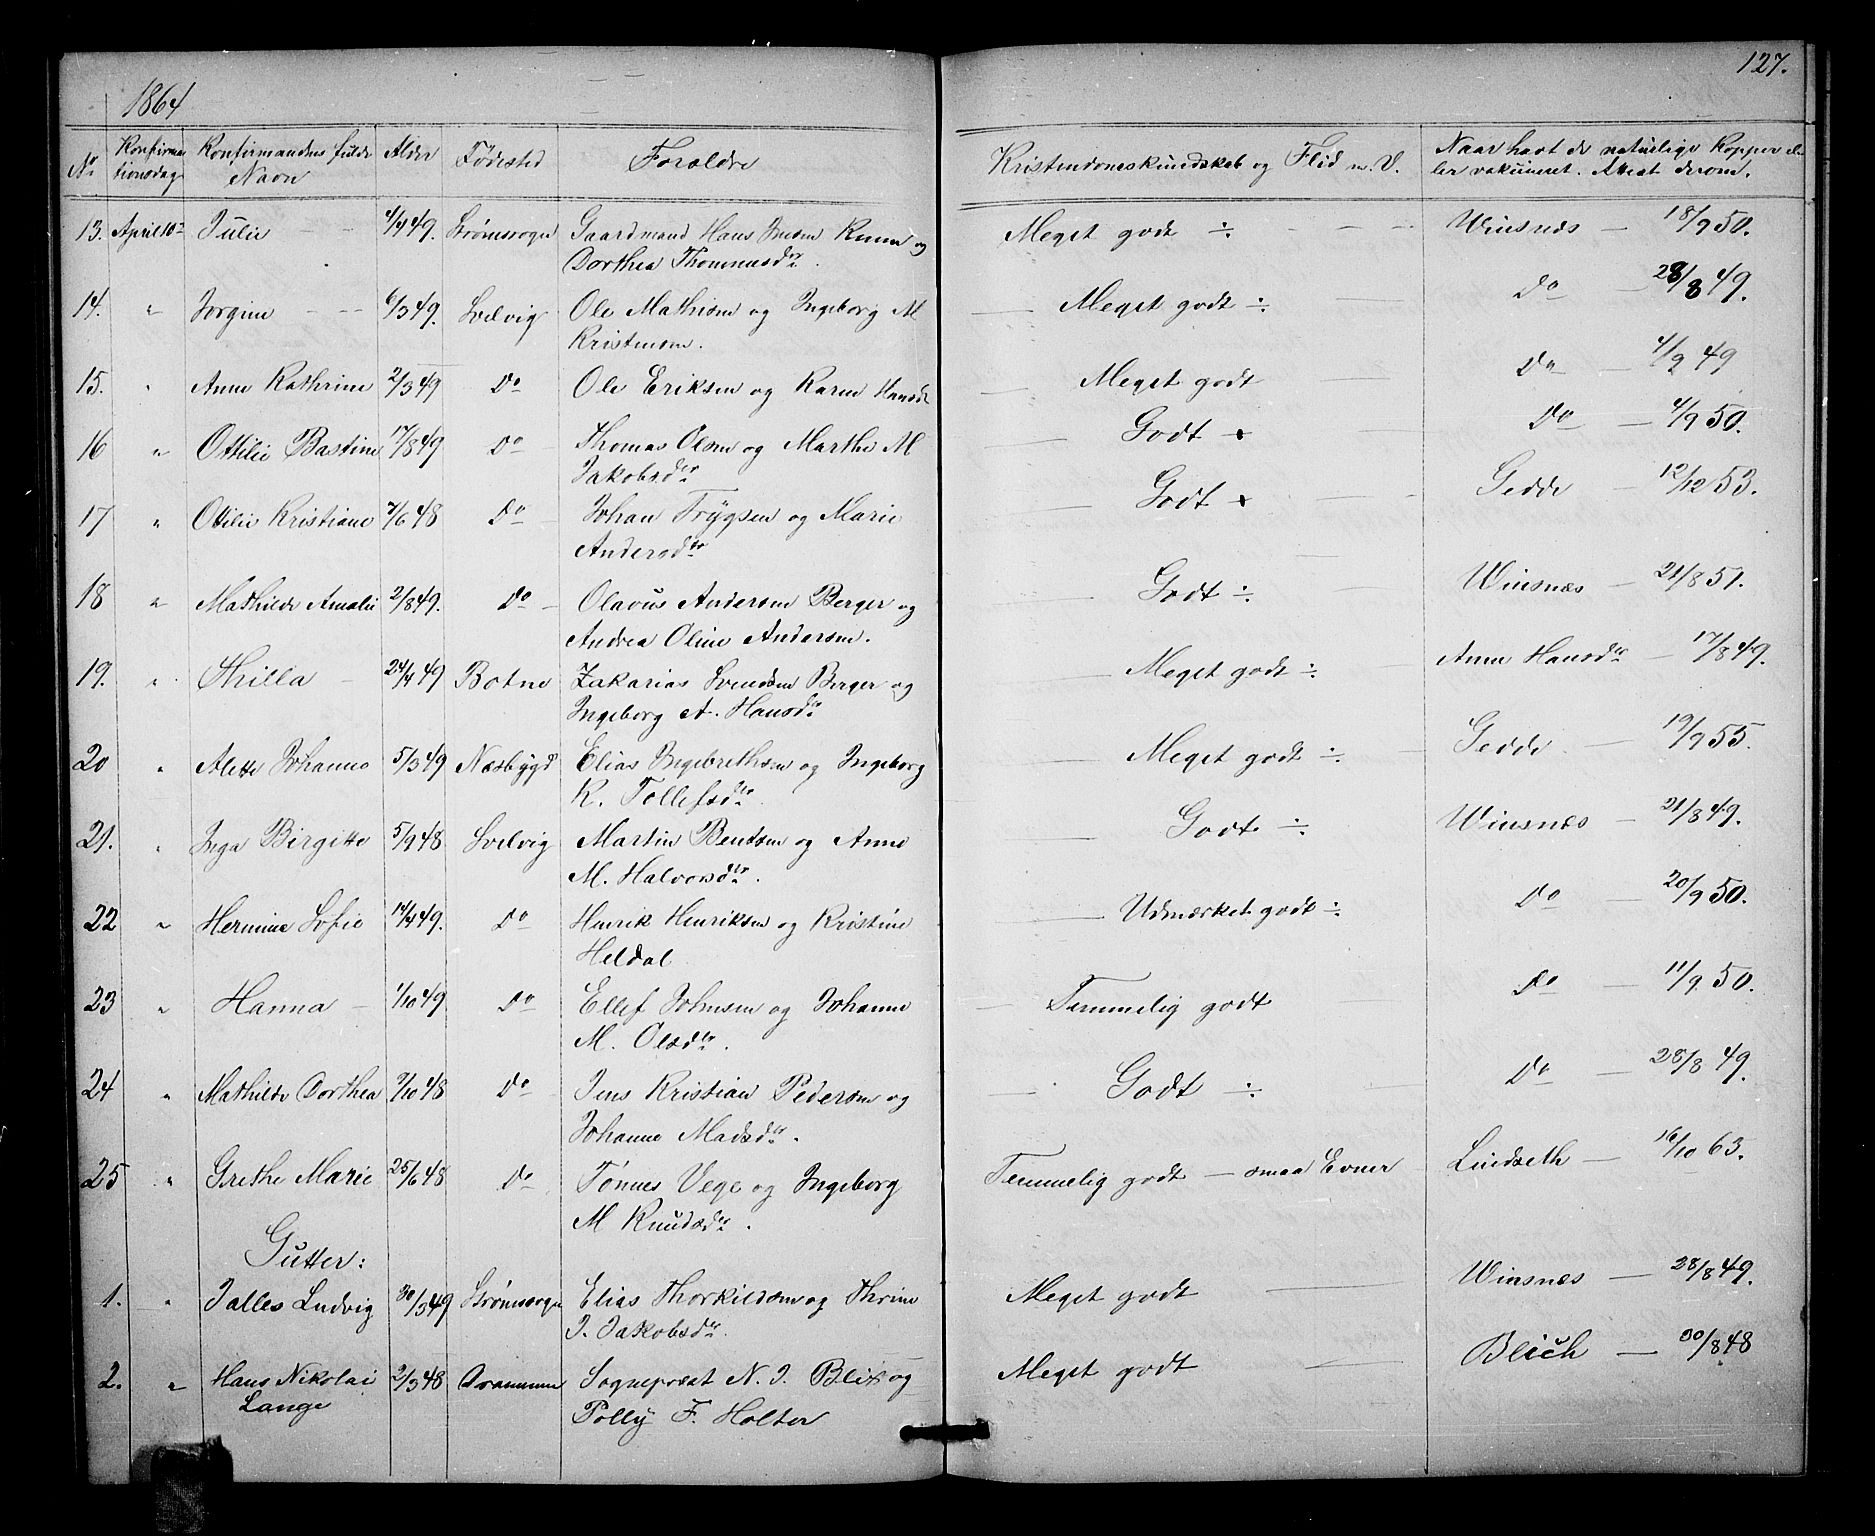 1864
127.
No Konfirmationsdag Konfirmandens fulde Navn Alder Fødested Forældre Kristendomskundskab og Flid m. V. Naar havt de naturlige Kopper eller vakcineret. Attest derom.
13. April 10de Julie 4/4 49. Strømssogn Gaardmand Hans Jensen og Meget godt ÷ Winsnæs 18/9 50.
Dorthea Thommesdtr.
14. " Jorgine 6/3 49. Svelvig Ole Mathisen og Ingeborg M Meget godt ÷ Do 28/8 49.
Kristensen.
15. " Anne Kathrine 2/3 49 Do Ole Eriksen og Karen Hansdr Meget godt Do 4/9 49
16 " Ottilie Bastine 17/8 49 Do Thomas Olsen og Marthe M Godt + Do 4/9 50.
Jakobsdtr
17 " Otilie Kristiane 7/6 48 Do Johan Trygsen og Marie Godt + Gedde 12/12 53.
Andersdtr
18 " Mathilde Amalie 2/8 49. Do Olavus Andersen Berger og Godt ÷ Winsnæs 21/8 51.
Andrea Oline Andersen.
19. " Thilla 24/4 49 Botne Zakarias Svendsen Berger og Meget godt ÷ Anne Hansdtr 17/8 49.
Ingeborg A. Hansdtr
20 " Alette Johanne 5/3 49 Næsbygd Elias Ingebrethsen og Ingeborg Meget godt ÷ Gedde 19/9 55.
K. Tollefsdtr
21. " Inga Birgitte 5/9 48 Svelvig Martin Bentsen og Anne Godt ÷ Winsnæs 21/8 49.
M. Halvorsdtr.
22 " Hermine Sofie 14/4 49. Do Henrik Henriksen og Kristine Udmærket godt ÷ Do 20/9 50.
Heldal
23 " Hanna 1/10 49 Do Ellef Johnsen og Johanne Temmelig godt Do 11/9 50.
M. Olsdtr.
24 " Mathilde Dorthea 9/10 48 Do Jens Kristian Pedersen og Godt ÷ Do 28/8 49.
Johanne Madsdtr.
25 " Grethe Marie 25/6 48 Do Tønnes Vege og Ingeborg Temmelig godt — smaa Evner Lindseth 16/10 63.
M Knudsdtr.
Gutter:
1. " Jalles Ludvig 30/3 49 Strømssogn Elias Thorkildsen og Thrine Meget godt Winsnæs 28/8 49.
J. Jakobsdtr.
2. " Hans Nikolai 2/3 48 Drammen Sogneprest N. J. Blix og Meget godt Blich 30/8 48
Lange Polly F. Holter